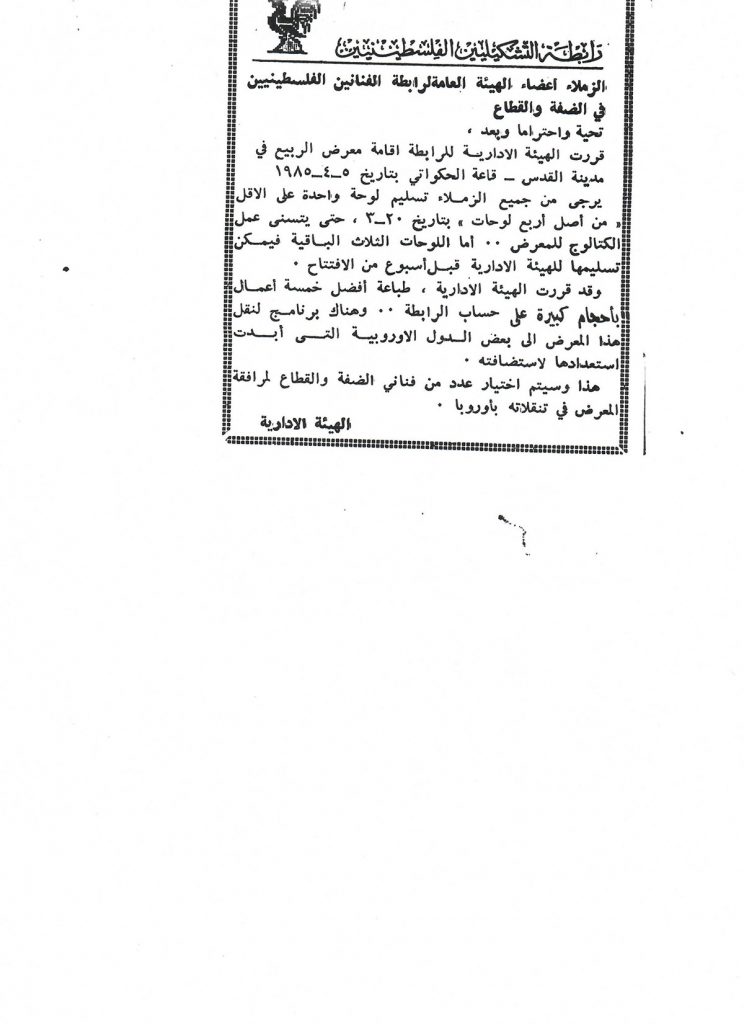 رابطة التشكيليين الفلسطينيين
الزملاء أعضاء الهيئة العامةلرابطة الفنانين الفلسطينيين
في الضفة والقطاع
تحية واحتراما وبعد ،
قررت الهيئة الادارية للرابطة اقامة معرض الربيع في
مدينة القدس ــ قاعة الحكواتي بتاريخ ٥ــ٤ــ١٩٨٥
يرجى من جميع الزملاء تسليم لوحة واحدة على الاقل
« من أصل أربع لوحات » بتاريخ ٢٠ــ٣ ، حتى يتسنى عمل
الكتالوج للمعرض ٠٠ أما اللوحات الثلاث الباقية فيمكن
تسليمها للهيئة الادارية قبل أسبوع من الافتتاح ٠
وقد قررت الهيئة الادارية ، طباعة أفضل خمسة أعمال
بأحجام كبيرة على حساب الرابطة ٠٠ وهناك برنامج لنقل
هذا المعرض الى بعض الدول الاوروبية التي أبدت
استعدادها لاستضافته ٠
هذا وسيتم اختيار عدد من فناني الضفة والقطاع لمرافقة
المعرض في تنقلاته بأوروبا ٠
الهيئة الادارية